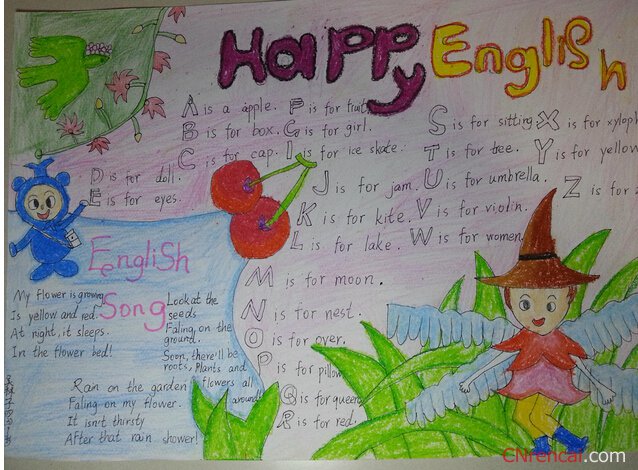 Happy English
A is a apple.
B is for box.
C is for cap.
D is for doll.
E is for eyes.
P is for fruit.
G is for girl.
I is for ice skate.
J is for jam.
K is for kite.
L is for lake.
M is for moon.
N is for nest.
O is for over.
P is for pillow
Q is for queen
R is for red.
S is for sitting
T is for tree.
U is for umbrella.
V is for violin.
W is for women.
X is for xyloph
Y is for yellow
Z is for
English Song
My flower is growing
Is yellow and red.
At night, it sleeps.
In the flower bed!
Rain on the garden
Faling on my flower.
It isn't thirsty
After that rain shower!
Look at the
seeds
Faling, on the
ground.
Soon, there'll be
roots, Plants and
flowers all
around!
CNrencai.com